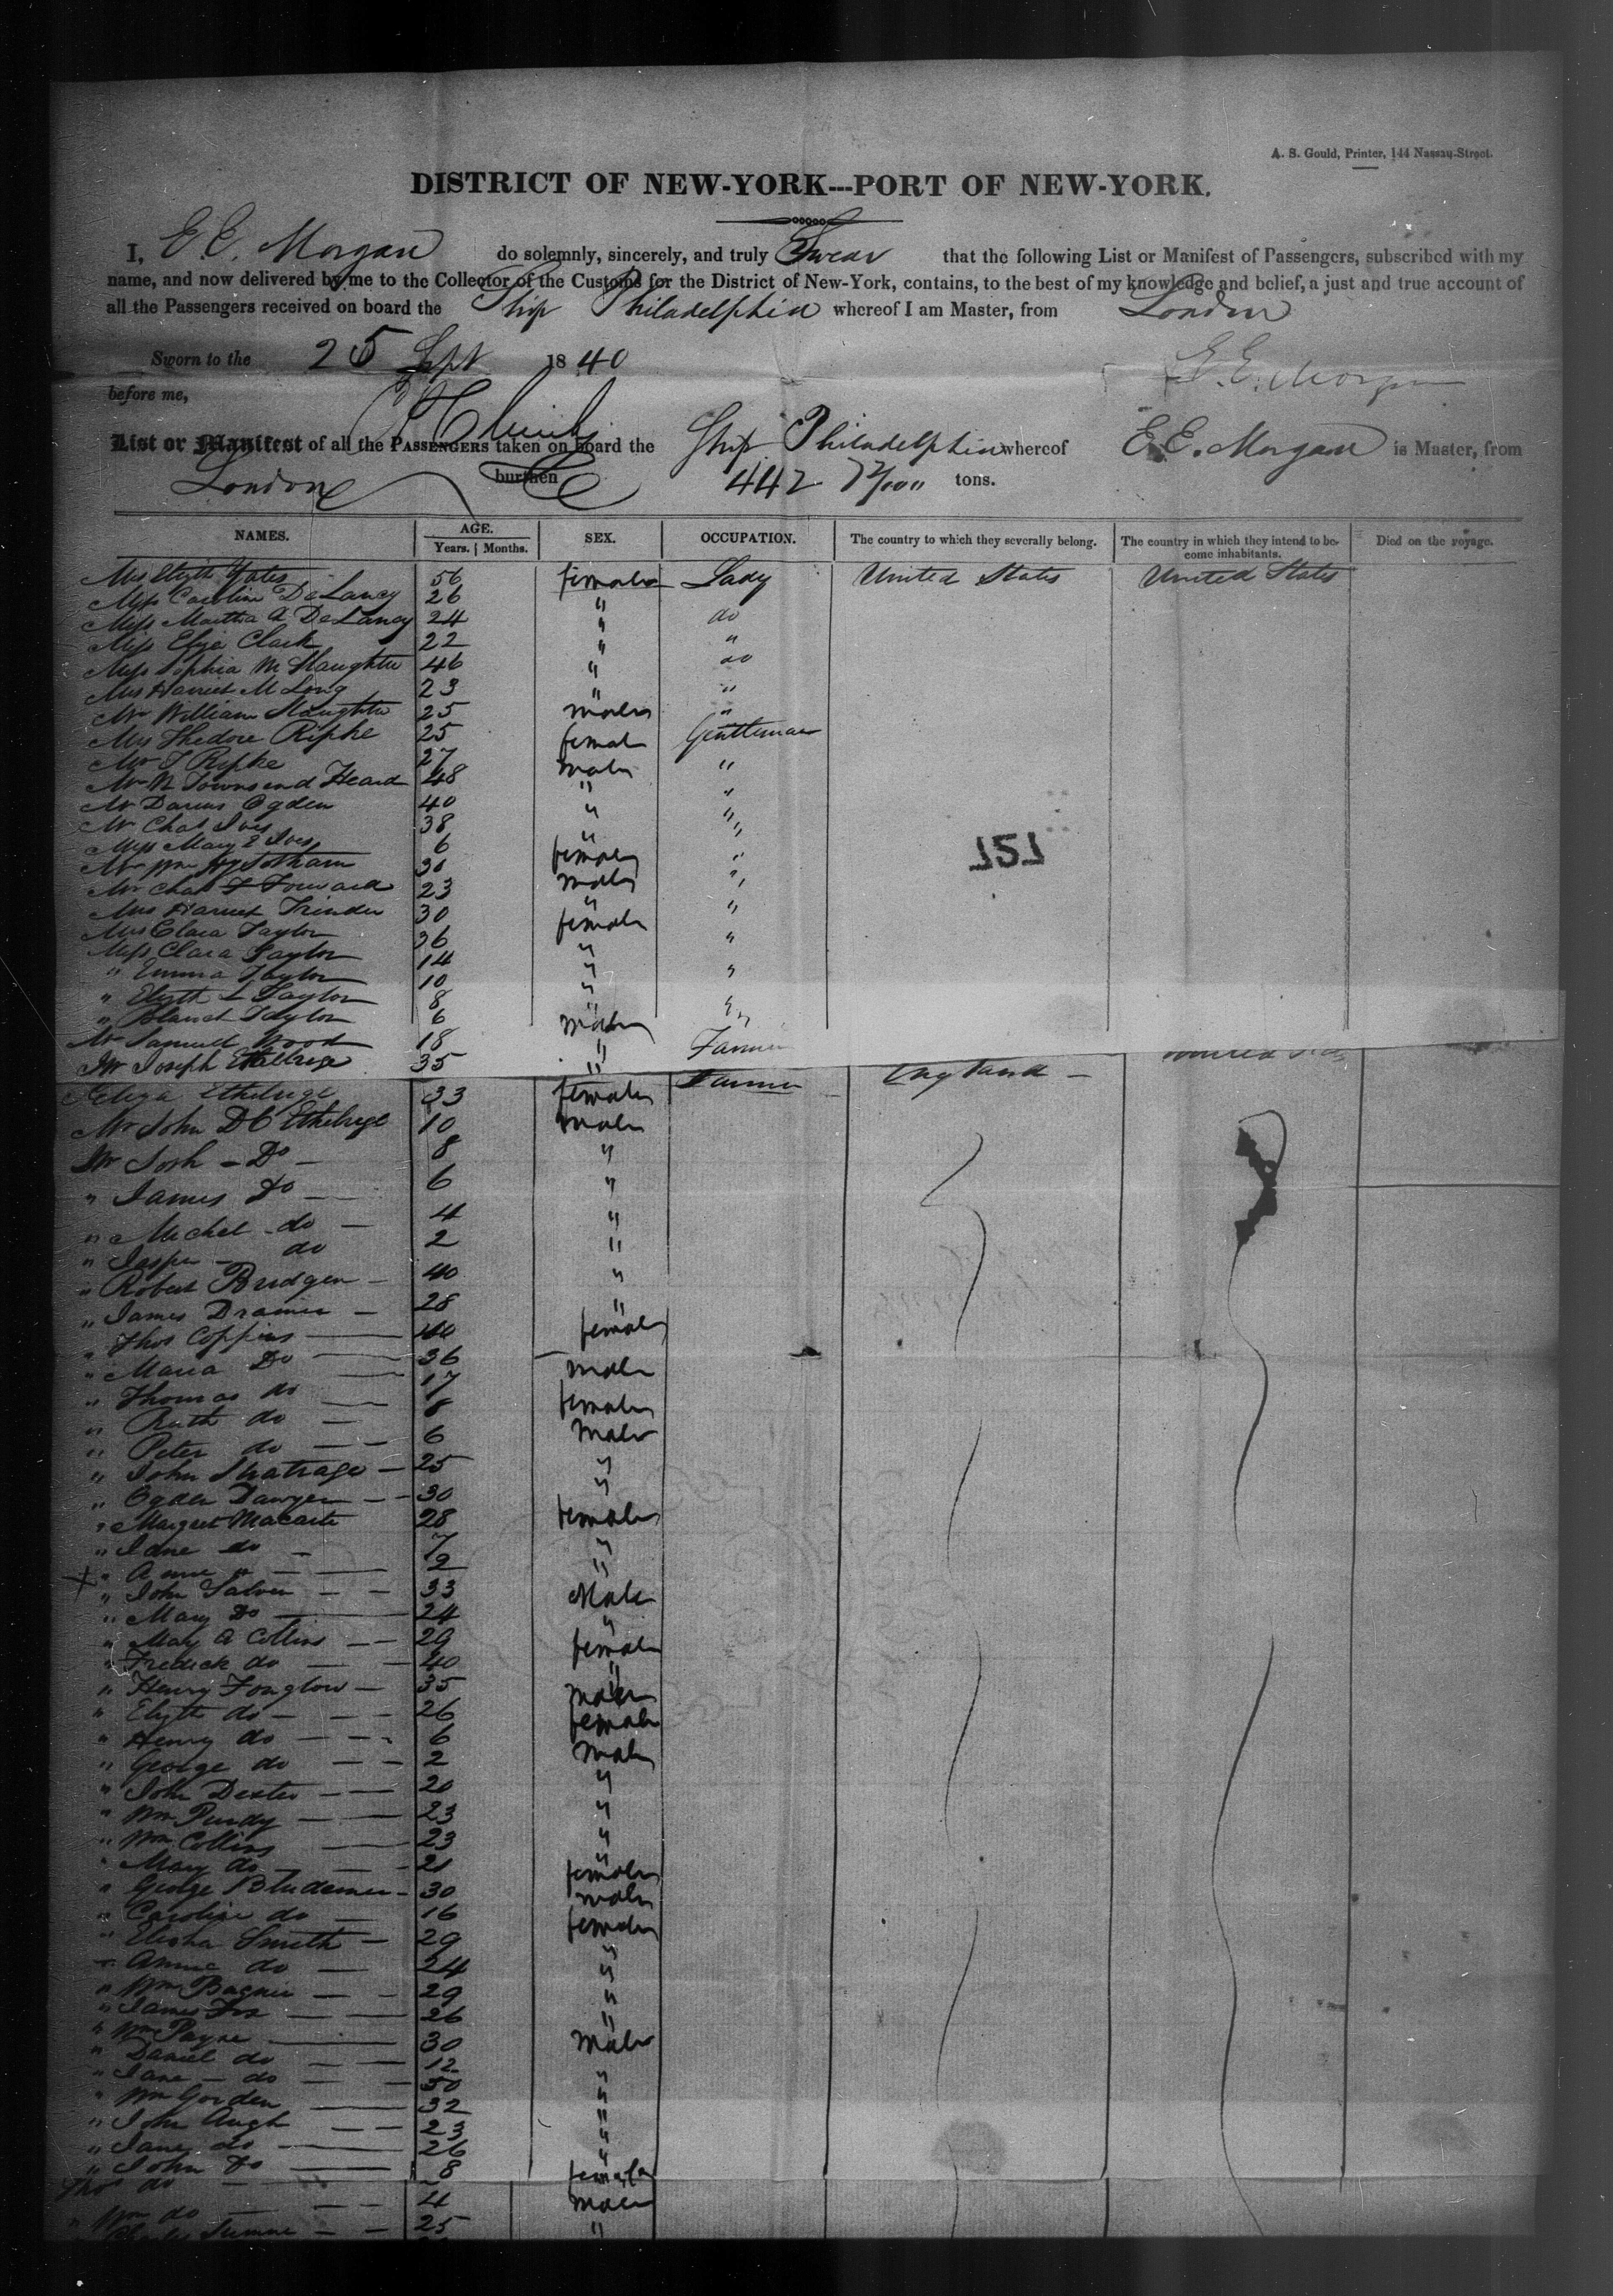 A. S. Gould, Printer, 144 Nassau-Street.
DISTRICT OF NEW-YORK---PORT OF NEW-YORK.
I, E. E. Morgan do solemnly, sincerely, and truly Swear that the following List or Manifest of Passengers, subscribed with my
name, and now delivered by me to the Collector of the Customs for the District of New-York, contains, to the best of my knowledge and belief, a just and true account of
all the Passengers received on board the Ship Philadelphia whereof I am Master, from London
Sworn to the 25 Sept 1840
E. E. Morgan
before me,
List or Manifest of all the PASSENGERS taken on board the Ship Philadelphia whereof E. E. Morgan is Master, from
London burthen 442 tons.
NAMES. AGE. SEX. OCCUPATION. The country to which they severally belong. The country in which they intend to become inhabitants. Died on the voyage.
Years. Months.
Mrs Yates 56 female Lady United States United States
Miss Caroline DeLancy 26 "
Miss Martha A DeLancy 24 " do
Miss Eliza Clark 22 " "
Miss Sophia M Slaughter 46 " do
Mrs Harriet M Long 23 " "
Mr William Slaughter 25 male "
Mrs Thedore Ripke 25 female Gentleman
Mr T Ripke 27 male "
Mr N Townsend Heard 48 " "
Mr Darius Ogden 40 " "
Mr Chas Ives 38 " "
Miss Mary E Ives 6 female "
Mr Wm 30 male "
Mr Chas F Forward 23 " "
Mrs Harriet Trinder 30 female
Mrs Clara Taylor 36 " "
Miss Clara Taylor 14 "
" Emma Taylor 10 " "
" Elizth L Taylor 8 " "
" Blanch Taylor 6 "
Mr Samuel Wood 18 male Farmer
Mr Joseph Ethelrege 35 "
Eliza Ethelrege 33 female Farmer England
Mr John DC Ethelrege 10 male
Mr Josh - Do - 8 "
" James Do 6 "
" Michel do 4 "
" Jasper do 2 "
" Robert Bridgen 40 "
" James 28 "
" Thos Coppins 40 female
" Maria Do 36 male
" Thomas do 17 female
" Ruth do 8 male
" Peter do 6 "
" John 25 "
" Ogden 30
" Margret Macarte 28 female
" Jane do 7 "
" Anne " 2 "
" John 33 Male
" Mary Do 24 "
" Mary A Collins 29 female
" Fredick do 40 "
" Henry 35 male
" Elizth do 26 female
" Henry do 6 male
" George do 2 "
" John Dexter 20 "
" Wm Purdy 23 "
" Wm Collins 23
" Mary do 21 female
" George 30 male
" Caroline do 16 female
" Elisha Smith 29 "
" Annie do 24 "
" Wm 29 "
" James Fox 26 "
" Wm Payne 30 Male
" Daniel do 12
" Jane - do 50 "
" Wm Gorden 32 "
" John 23 "
" Jane do 26 "
" John Do 8 female
Thos do
" Wm do 4 male
" Charles 25 "
151